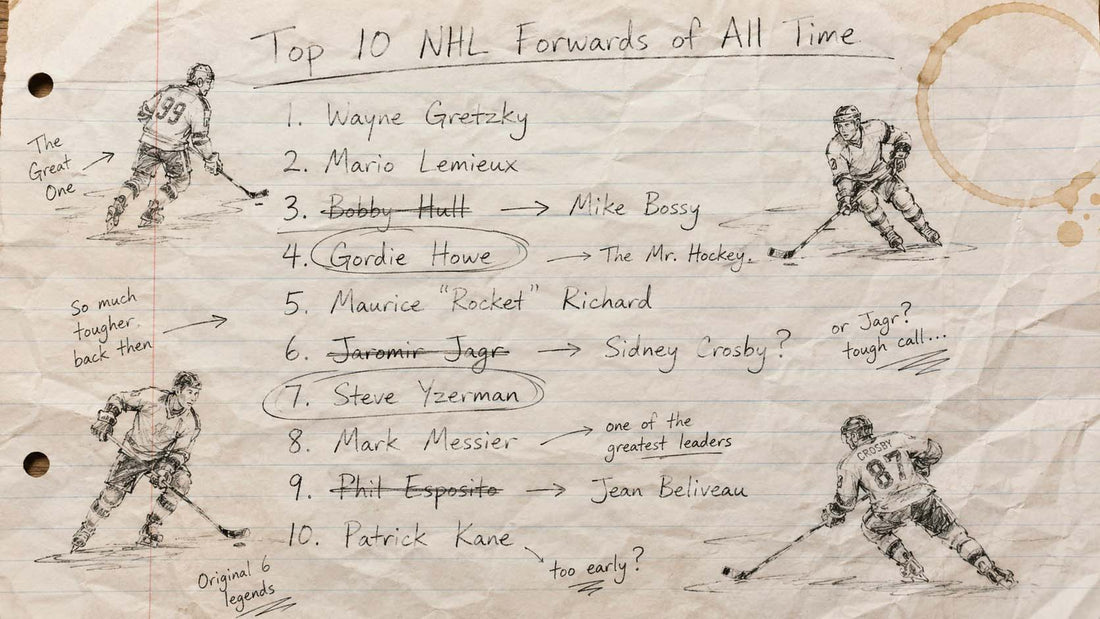 Top 10 NHL Forwards of All Time
99
The
Great
One
1. Wayne Gretzky
2. Mario Lemieux
3. Bobby Hull → Mike Bossy
4. Gordie Howe → The Mr. Hockey.
5. Maurice "Rocket" Richard
So much
tougher.
back then
6. Jaromir Jagr → Sidney Crosby?
or Jagr?
tough call...
7. Steve Yzerman
8. Mark Messier → one of the
greatest leaders
9. Phil Esposito → Jean Beliveau
10. Patrick Kane
too early?
Original 6
legends
CROSBY
87